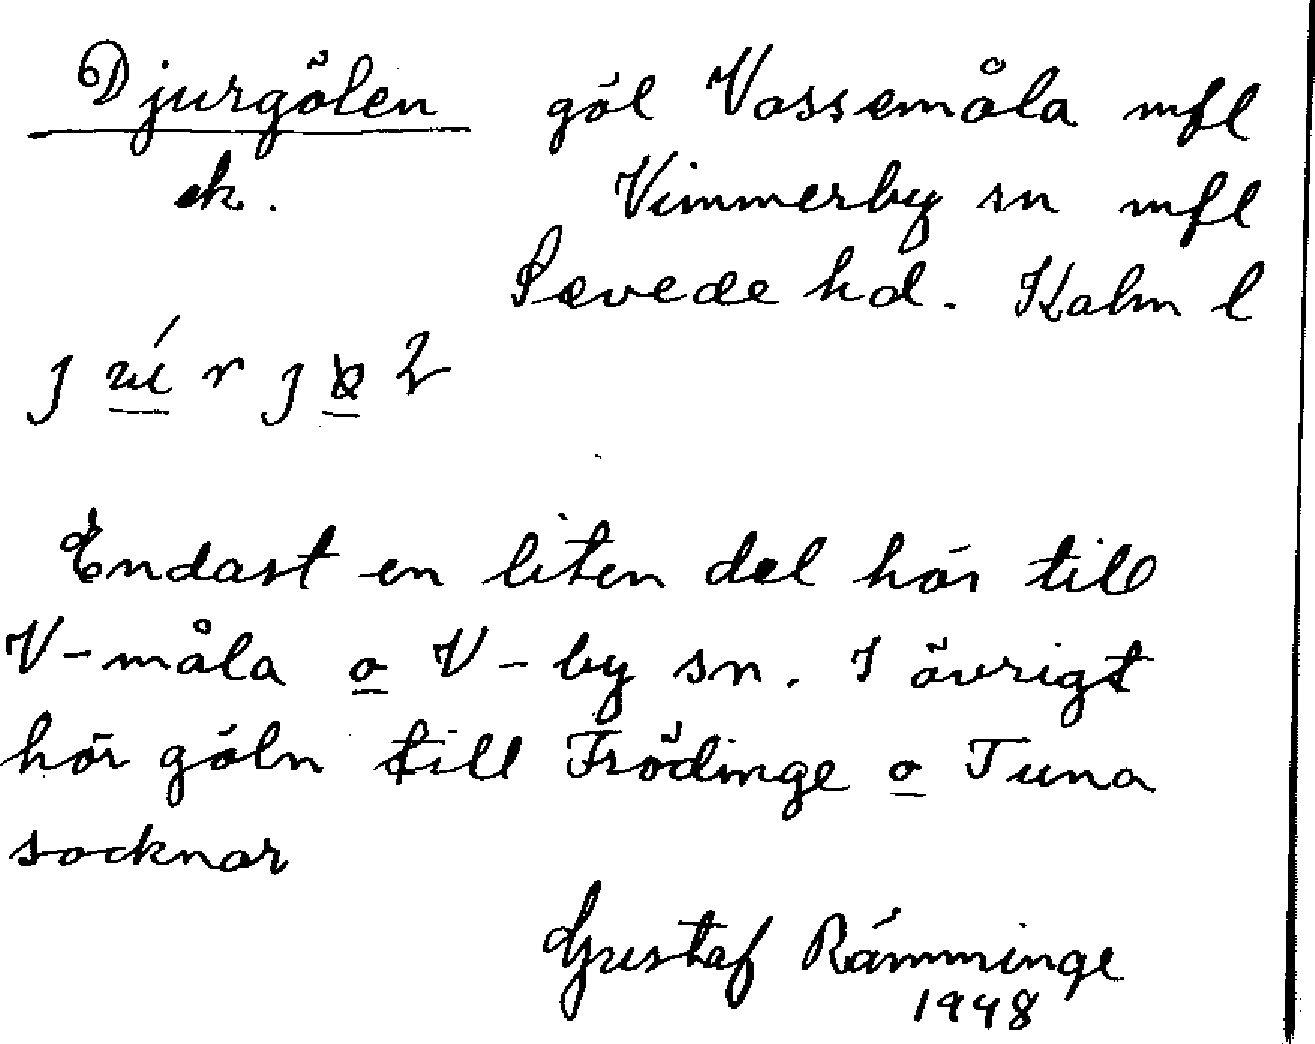 Djurgölen göl Vassemåla mfl
ek. Vimmerby sn mfl
Sevede hd. Kalm l
Endast en liten del hör till
V-måla o V-by sn. I övrigt
hör göln till Frödinge o Tuna
socknar
Gustaf Rämminge
1948